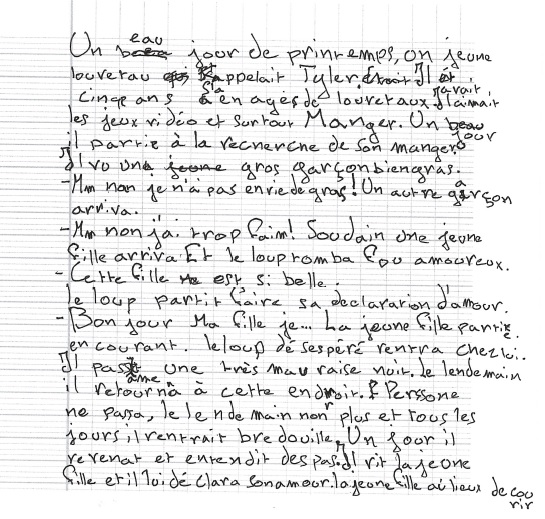 Un beau jour de printemps, on jeune
louvetau s'appelait Tyler Il avait
cinqe ans en ages de louvetaux. Il aimait
les jeux vidéo et surtout Manger. Un beau jour
il partie à la recherche de son manger.
Il vu une gros garçon bien gras.
- Mm non je n'ai pas envie de gras! Un autre garçon
arriva.
- Mm non j'ai trop faim! Soudain une jeune
fille arriva Et le loup tomba fou amoureux.
- Cette fille est si belle.
le loup partit faire sa declaration d'amour.
- Bon jour Ma fille je... La jeune fille partie
en courant. le loup désespéré rentra chez lui.
Il passa une très mauvaise nuit. le lendemain
il retourna à cette endroit. Perssone
ne passa, le lendemain non plus et tous les
jours il rentrait bredouille. Un jour il
revenat et entendit des pas. Il vit la jeune
fille et il lui déclara son amour. la jeune fille au lieux de courir